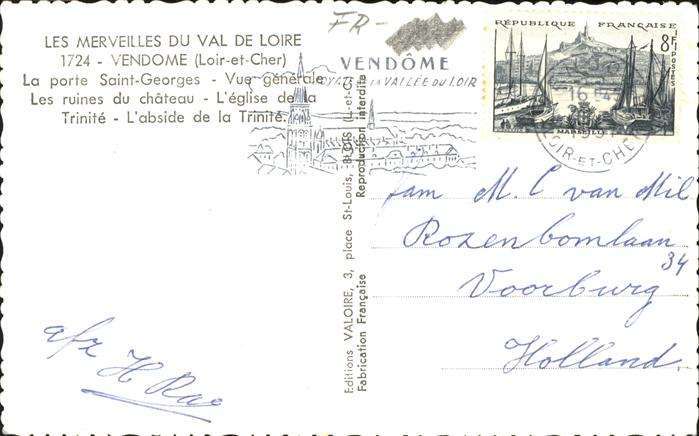 LES MERVEILLES DU VAL DE LOIRE
1724 - VENDOME (Loir-et-Cher)
La porte Saint-Georges - Vue générale
Les ruines du château - L'église de la
Trinité - L'abside de la Trinité.
FR-
VENDÔME
DE LA VALLÉE DU LOIR
RÉPUBLIQUE FRANÇAISE
8F
POSTES
MARSEILLE
16
LOIR-ET-CHER
Editions VALOIRE, 3, place St-Louis, BLOIS (L.-et-C.)
Fabrication Française
Reproduction interdite
fam M. C van Mil
Rozenbomlaan
34
Voorburg
Holland.
afz H Rac